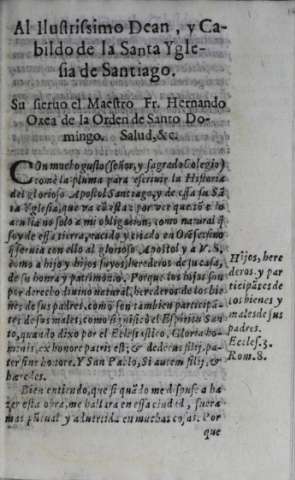 Al Ilustrissimo Dean, y Ca-
bildo de la Santa Ygle-
sia de Santiago.
Su sieruo el Maestro Fr. Hernando
Oxea de la Orden de Santo Do-
mingo. Salud, &c.
COn mucho gusto (señor, y sagrado Colegio)
tomè la pluma para escriuir la Historia
del glorioso Apostol Santiago, y de essa su Sã
ta Yglesia, que va cõ esta: por ver que cõ
acudia no solo a mi obligacion, como natural q̃
soy de essa tierra, nacido y criado en
seruia con ello al glorioso Apostol y a V. S.
como a hijo y hijos suyos, herederos de su casa,
de su honra y patrimonio. Porque los hijos son
por derecho diuino natural, herederos de los bie
nes de sus padres, como son tambien participã-
tes de sus males, como significò el Espiritu San-
to, quando dixo por el Eclesiastico, Gloria ho-
minis, ex honore patris est; & dedecus filij, pa-
ter sine honore. Y San Pablo, Si autem filij, &
hæredes.
Hijos, here
deros y par
ticipãtes de
los bienes y
males de sus
padres.
Eccles. 3.
Rom. 8.
Bien entiendo, que si quãdo me dispuse a ha-
zer esta obra, me hallara en essa ciudad, fuera
mas pũtual y aduertida en muchas cosas. Por
que